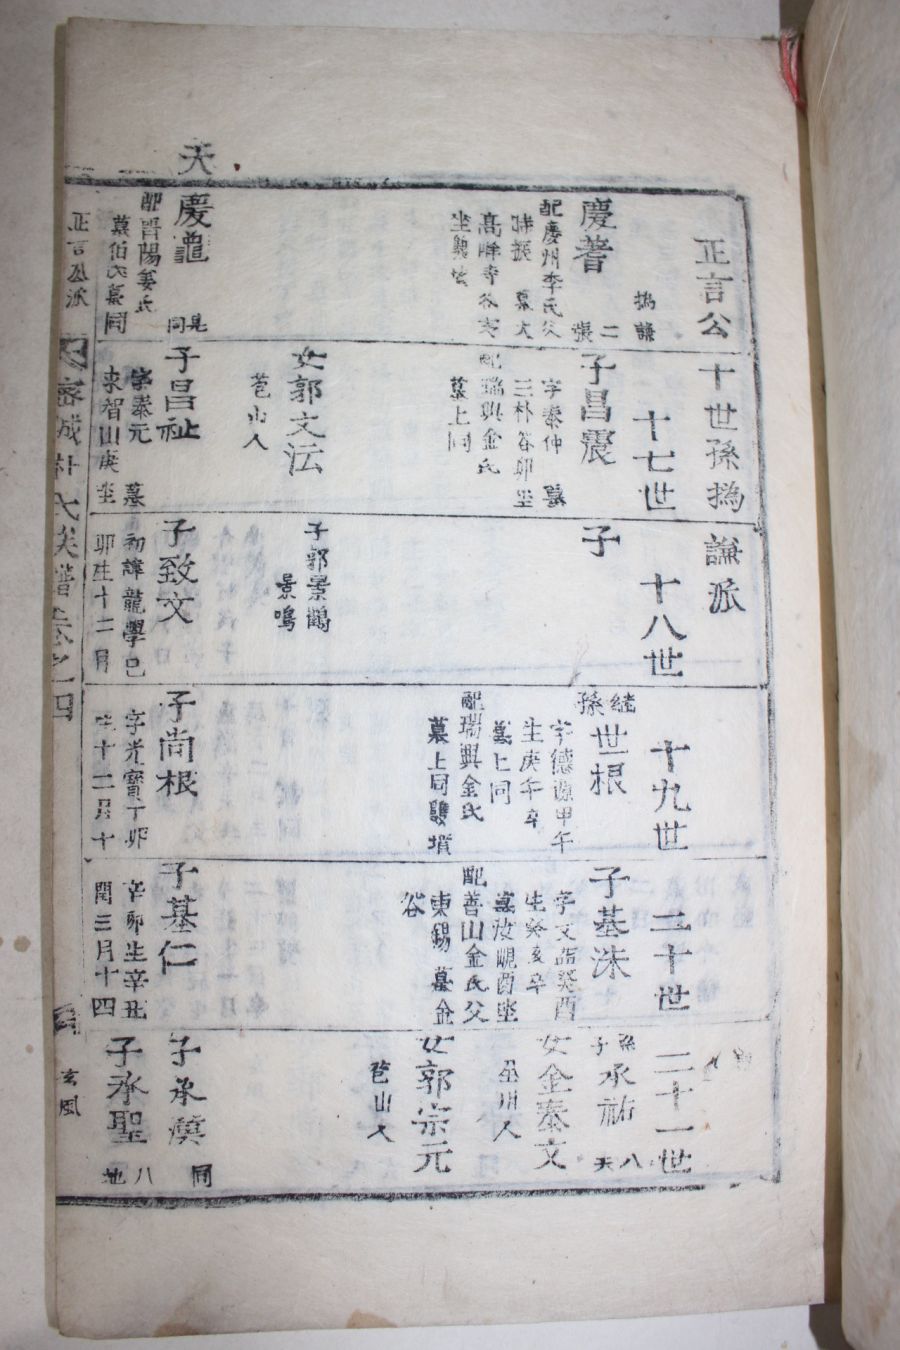 天
正言公
十世孫撝
謙派
十七世
十八世
十九世
二十世
二十一世
慶著
撝謙
二
張
配慶州李氏父
子昌震
字泰仲 墓
三朴谷卯坐
配瑞興金氏
墓上同
子
繼
孫
世根
字德源甲午
生庚午卒
墓上同
配瑞興金氏
墓上同雙墳
子基洙
字文
癸酉
生癸亥卒
酉坐
配善山金氏父
東錫 墓金
谷
孫
子
承祐
八
天
女金泰文
人
女郭宗元
苞山人
女郭文沄
苞山人
子郭景鶴
景鳴
慶龍
見
同
配晋陽姜氏
墓伯氏墓同
子昌祉
字泰元 墓
東智山庚坐
子致文
初諱龍學己
卯生十二月
子尚根
字光寶丁卯
生十二月十
子基仁
辛卯生辛丑
閏三月十四
子承漢
同
子承聖
八
地
正言公派
密城朴氏族譜卷之四
玄風